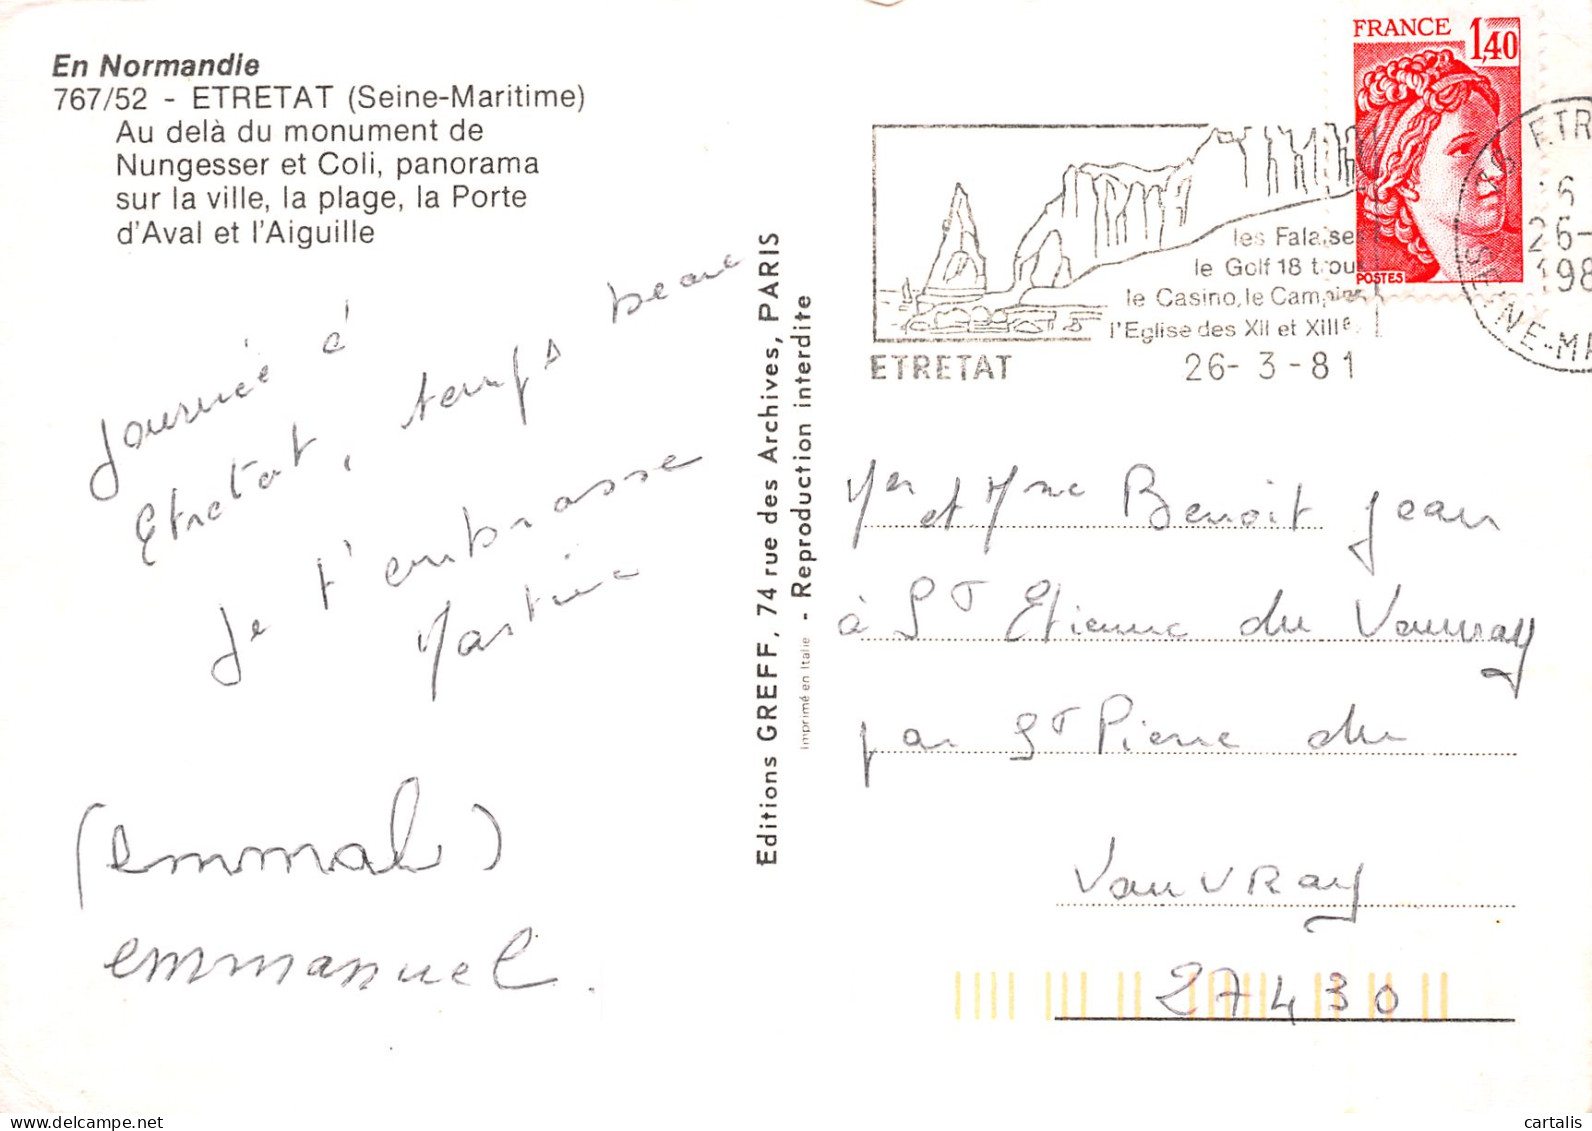 En Normandie
767/52 - ETRETAT (Seine-Maritime)
Au delà du monument de
Nungesser et Coli, panorama
sur la ville, la plage, la Porte
d'Aval et l'Aiguille
Journée à
Etretat, temps beau
Je t'embrasse
Martine
(emmal)
emmanuel.
Editions GREFF, 74 rue des Archives, PARIS
Imprimé en Italie - Reproduction interdite
FRANCE 1,40
POSTES
les Falaises
le Golf 18 trou
le Casino, le Camping
l'Eglise des XII et XIIIe
ETRETAT 26- 3 -81
ETR
16
26-
198
SEINE-MA
Mer et Mme Benoit Jean
à St Etienne du Vauvray
par St Pierre du
Vauvray
27430
cartalis